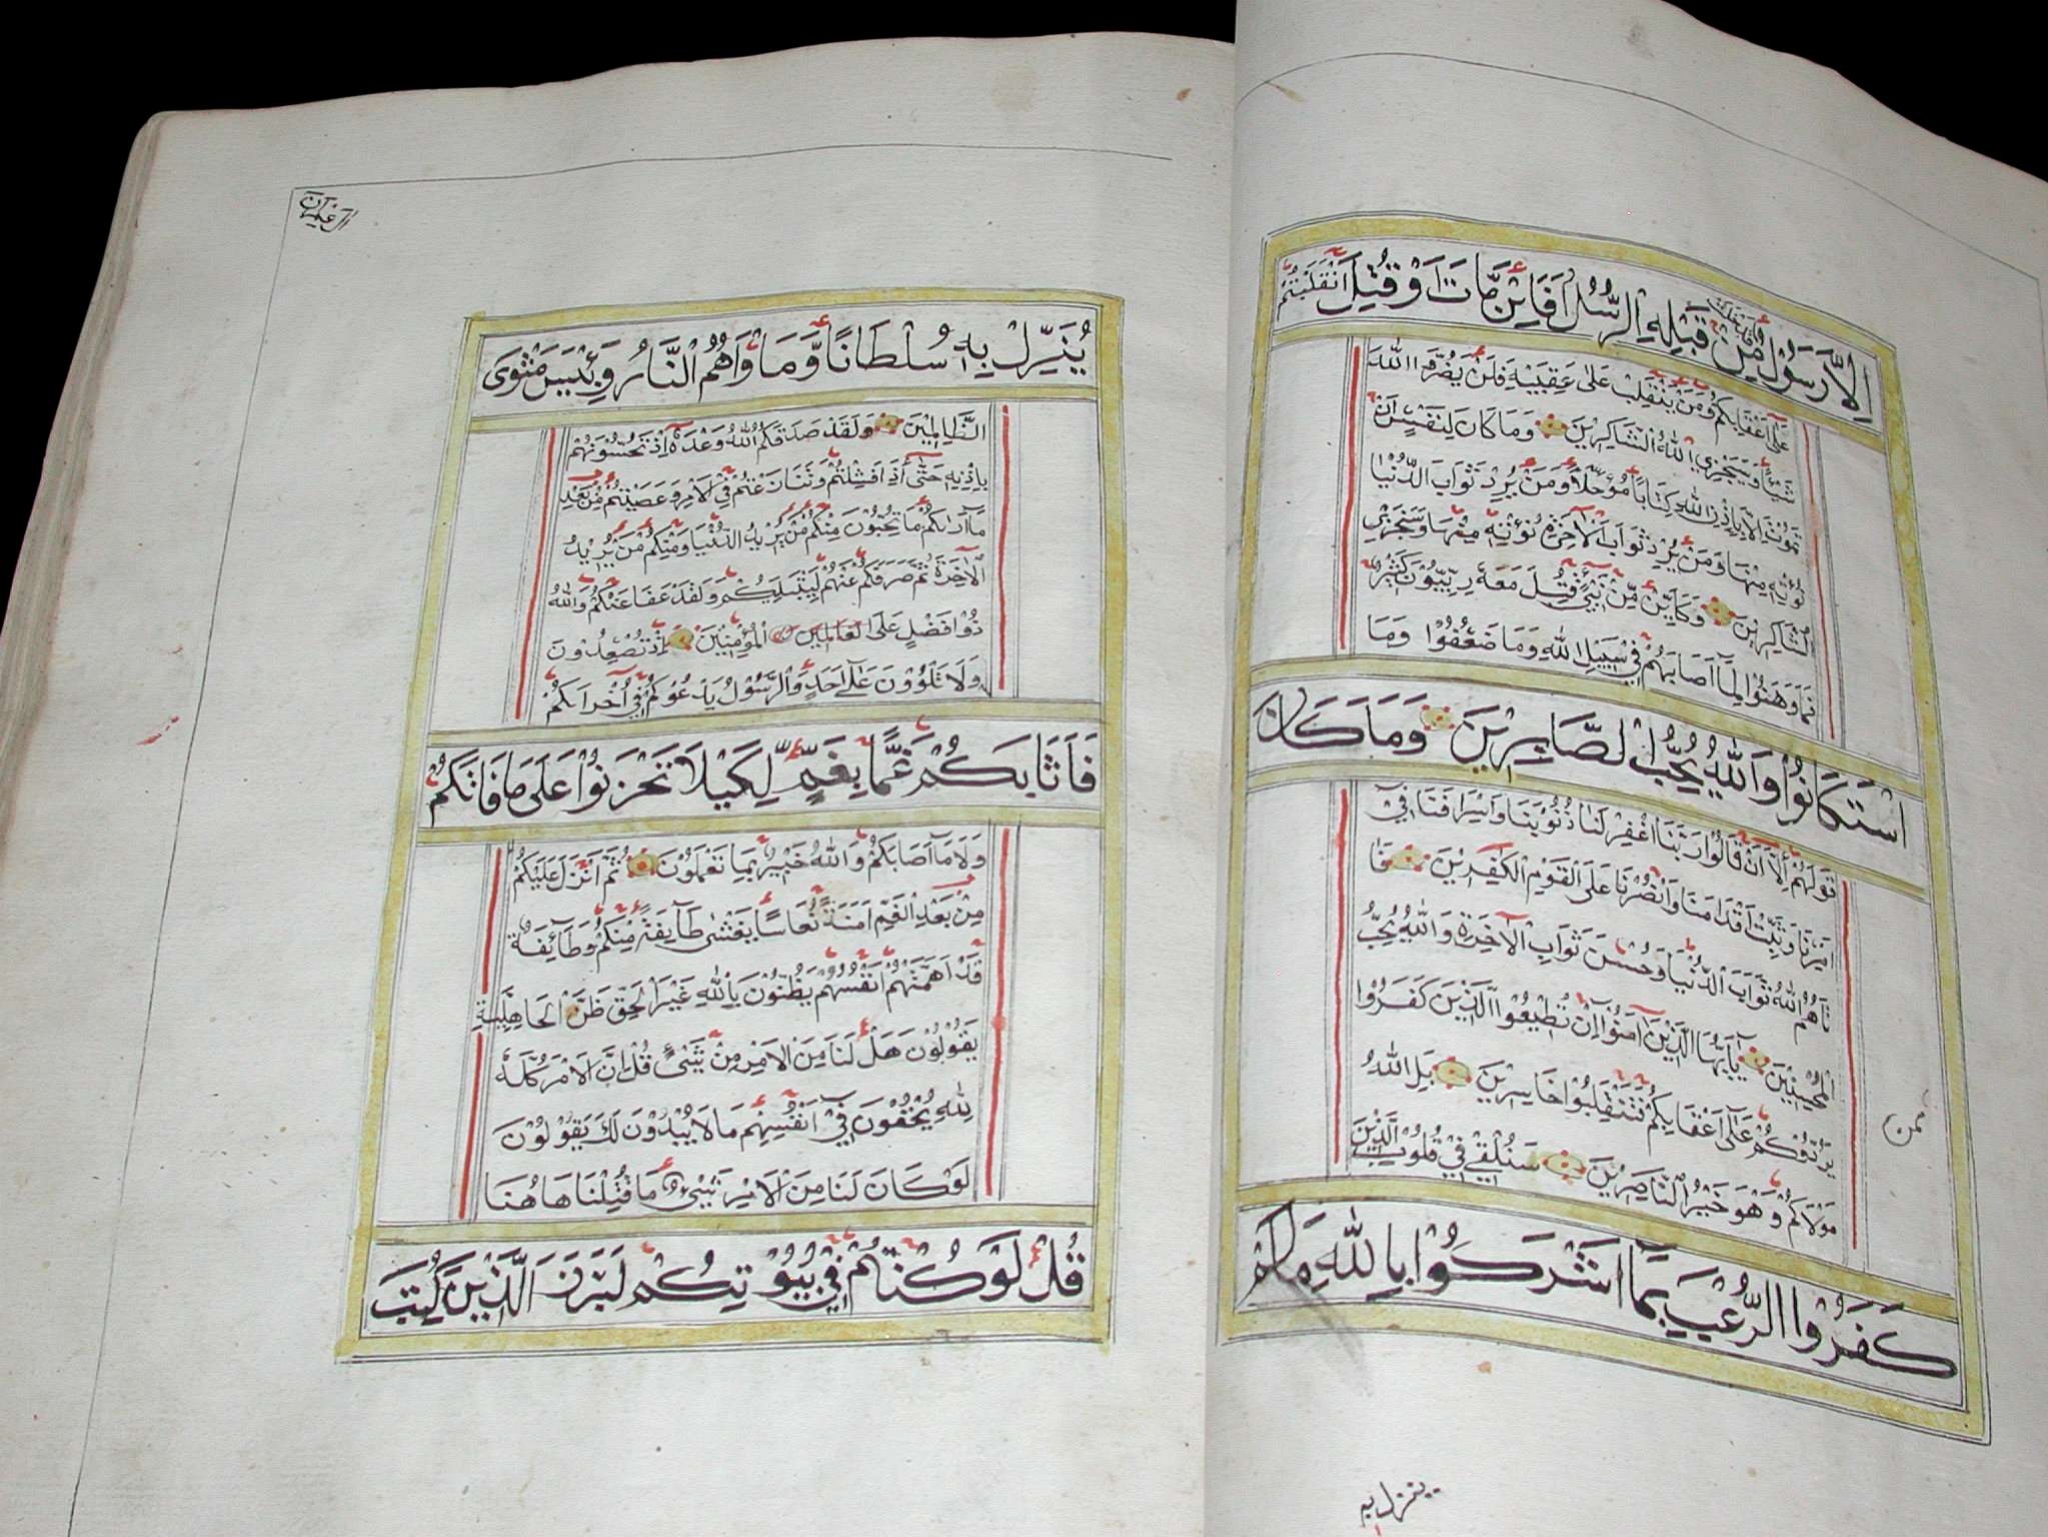 إِلَّا رَسُولٌ قَدْ خَلَتْ مِنْ قَبْلِهِ الرُّسُلُ أَفَائِنْ مَّاتَ أَوْ قُتِلَ انْقَلَبْتُمْ
عَلَى أَعْقَابِكُمْ وَمَنْ يَنْقَلِبْ عَلَى عَقِبَيْهِ فَلَنْ يَضُرَّ اللَّهَ
شَيْئًا وَسَيَجْزِي اللَّهُ الشَّاكِرِينَ وَمَا كَانَ لِنَفْسٍ أَنْ
تَمُوتَ إِلَّا بِإِذْنِ اللَّهِ كِتَابًا مُؤَجَّلًا وَمَنْ يُرِدْ ثَوَابَ الدُّنْيَا
نُؤْتِهِ مِنْهَا وَمَنْ يُرِدْ ثَوَابَ الْآخِرَةِ نُؤْتِهِ مِنْهَا وَسَنَجْزِي
الشَّاكِرِينَ وَكَأَيِّنْ مِّنْ نَبِيٍّ قُتِلَ مَعَهُ رِبِّيُّونَ كَثِيرٌ
فَمَا وَهَنُوا لِمَا أَصَابَهُمْ فِي سَبِيلِ اللَّهِ وَمَا ضَعُفُوا وَمَا
اسْتَكَانُوا وَاللَّهُ يُحِبُّ الصَّابِرِينَ وَمَا كَانَ
قَوْلَهُمْ إِلَّا أَنْ قَالُوا رَبَّنَا اغْفِرْ لَنَا ذُنُوبَنَا وَإِسْرَافَنَا فِي
أَمْرِنَا وَثَبِّتْ أَقْدَامَنَا وَانْصُرْنَا عَلَى الْقَوْمِ الْكَافِرِينَ فَآ
تَاهُمُ اللَّهُ ثَوَابَ الدُّنْيَا وَحُسْنَ ثَوَابِ الْآخِرَةِ وَاللَّهُ يُحِبُّ
الْمُحْسِنِينَ يَا أَيُّهَا الَّذِينَ آمَنُوا إِنْ تُطِيعُوا الَّذِينَ كَفَرُوا
يَرُدُّوكُمْ عَلَى أَعْقَابِكُمْ فَتَنْقَلِبُوا خَاسِرِينَ بَلِ اللَّهُ
مَوْلَاكُمْ وَهُوَ خَيْرُ النَّاصِرِينَ سَنُلْقِي فِي قُلُوبِ الَّذِينَ
كَفَرُوا الرُّعْبَ بِمَا أَشْرَكُوا بِاللَّهِ مَا لَمْ
ينزل به
آل عمران
يُنَزِّلْ بِهِ سُلْطَانًا وَّمَأْوَاهُمُ النَّارُ وَبِئْسَ مَثْوَى
الظَّالِمِينَ وَلَقَدْ صَدَقَكُمُ اللَّهُ وَعْدَهُ إِذْ تَحُسُّونَهُمْ
بِإِذْنِهِ حَتَّى إِذَا فَشِلْتُمْ وَتَنَازَعْتُمْ فِي الْأَمْرِ وَعَصَيْتُمْ مِّنْ بَعْدِ
مَا أَرَاكُمْ مَا تُحِبُّونَ مِنْكُمْ مَّنْ يُرِيدُ الدُّنْيَا وَمِنْكُمْ مَّنْ يُرِيدُ
الْآخِرَةَ ثُمَّ صَرَفَكُمْ عَنْهُمْ لِيَبْتَلِيَكُمْ وَلَقَدْ عَفَا عَنْكُمْ وَاللَّهُ
ذُو فَضْلٍ عَلَى الْعَالَمِينَ الْمُؤْمِنِينَ إِذْ تُصْعِدُونَ
وَلَا تَلْوُونَ عَلَى أَحَدٍ وَالرَّسُولُ يَدْعُوكُمْ فِي أُخْرَاكُمْ
فَأَثَابَكُمْ غَمًّا بِغَمٍّ لِّكَيْلَا تَحْزَنُوا عَلَى مَا فَاتَكُمْ
وَلَا مَا أَصَابَكُمْ وَاللَّهُ خَبِيرٌ بِمَا تَعْمَلُونَ ثُمَّ أَنْزَلَ عَلَيْكُمْ
مِنْ بَعْدِ الْغَمِّ أَمَنَةً نُعَاسًا يَغْشَى طَائِفَةً مِّنْكُمْ وَطَائِفَةٌ
قَدْ أَهَمَّتْهُمْ أَنْفُسُهُمْ يَظُنُّونَ بِاللَّهِ غَيْرَ الْحَقِّ ظَنَّ الْجَاهِلِيَّةِ
يَقُولُونَ هَلْ لَنَا مِنَ الْأَمْرِ مِنْ شَيْءٍ قُلْ إِنَّ الْأَمْرَ كُلَّهُ
لِلَّهِ يُخْفُونَ فِي أَنْفُسِهِمْ مَا لَا يُبْدُونَ لَكَ يَقُولُونَ
لَوْ كَانَ لَنَا مِنَ الْأَمْرِ شَيْءٌ مَا قُتِلْنَا هَاهُنَا
قُلْ لَوْ كُنْتُمْ فِي بُيُوتِكُمْ لَبَرَزَ الَّذِينَ كُتِبَ